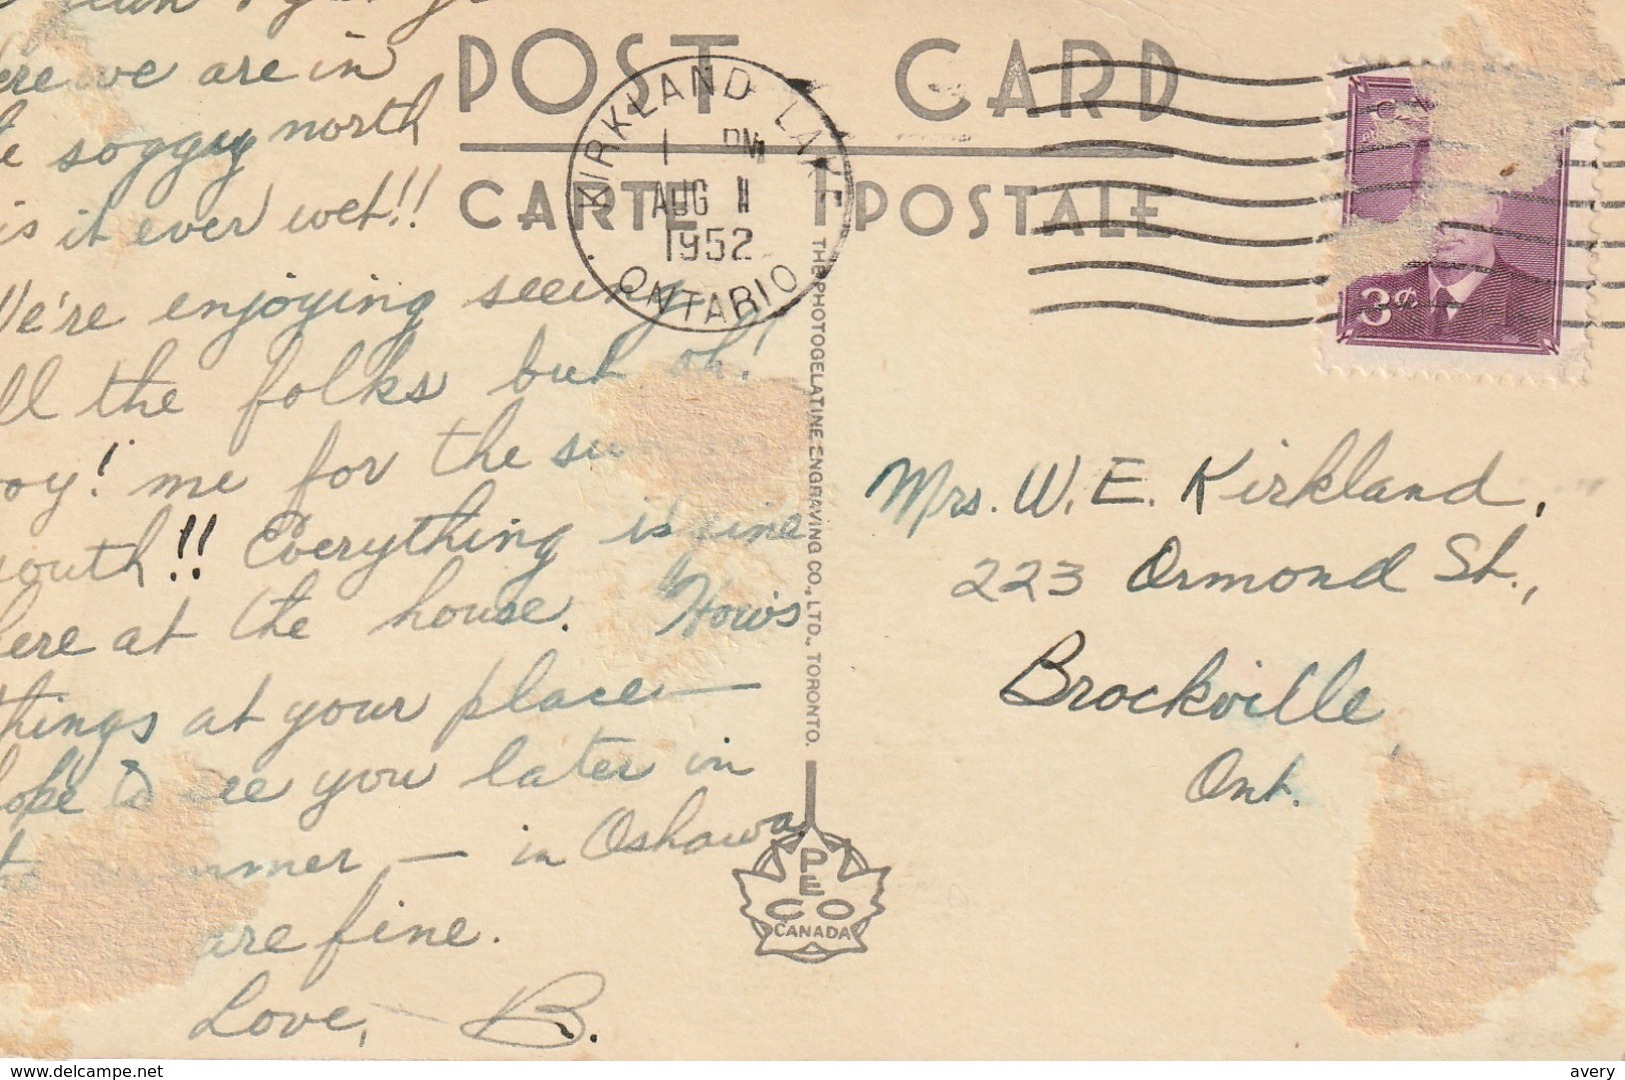 ere we are in
soggy north
is it ever wet!!
We're enjoying seeing
ll the folks but oh!
oy! me for the
outh!! Everything is fine
here at the house. How's
things at your place —
hope to see you later in
mmer — in Oshawa
are fine.
Love, — B.
POST CARD
CARTE POSTALE
KIRKLAND LAKE
1 PM
AUG 11
1952
ONTARIO
3¢
THE PHOTOGELATINE ENGRAVING CO., LTD., TORONTO.
Mrs. W. E. Kirkland,
223 Ormond St.,
Brockville,
Ont.
PECO
CANADA
www.delcampe.net
avery